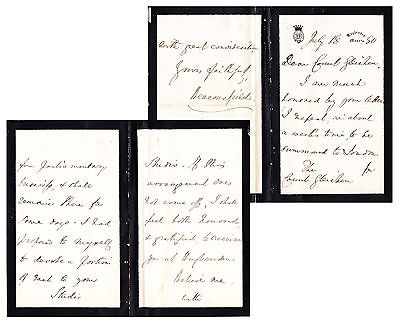 July 18 80
Dear Count Gleichen.
I am much
honored by your letter.
I expect, in about
a week's time to be
summoned to London
The for
Count Gleichen
for Parliamentary
business, & shall
remains there for
some days. I had
proposed to myself
to devote a portion
of each to your
Studio
Studio. If this
arrangement does
not come off, I shall
feel both honored
& gratified to receive
you at Hughenden
Believe me,
with
with great consideration
Yours faithful,
Beaconsfield.